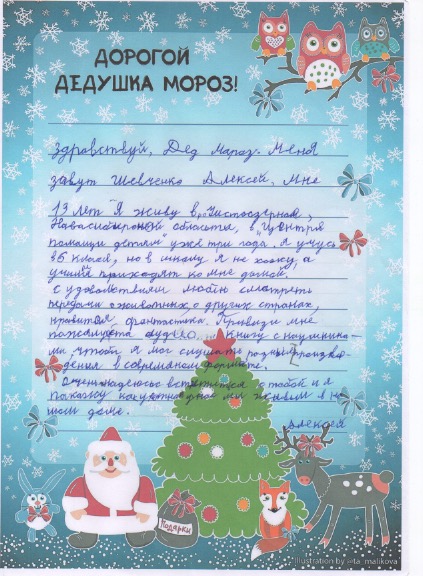 ДОРОГОЙ
ДЕДУШКА МОРОЗ!
здравствуй, Дед мароз. Меня
завут Шевченко Алексей, мне
13 лет Я живу в Чистоозерном,
Навасибирской области, в "Центре
помощи детям уже три года. Я учусь
в 6 класе, но в школу я не хожу, а
учителя приходят ко мне домой,
с удовольствием люблю смотреть
передачи о животных, о других странах,
нравится фантастика. Привези мне
пожалуйста аудио книгу с наушника-
ми чтобы я мог слушать разные произве-
дения в современом формате.
Очень надеюсь встретится с тобой и я
покажу как уютно мы живем в на-
шем доме.
Алексей
Подарки
Illustration by @ta_malikova